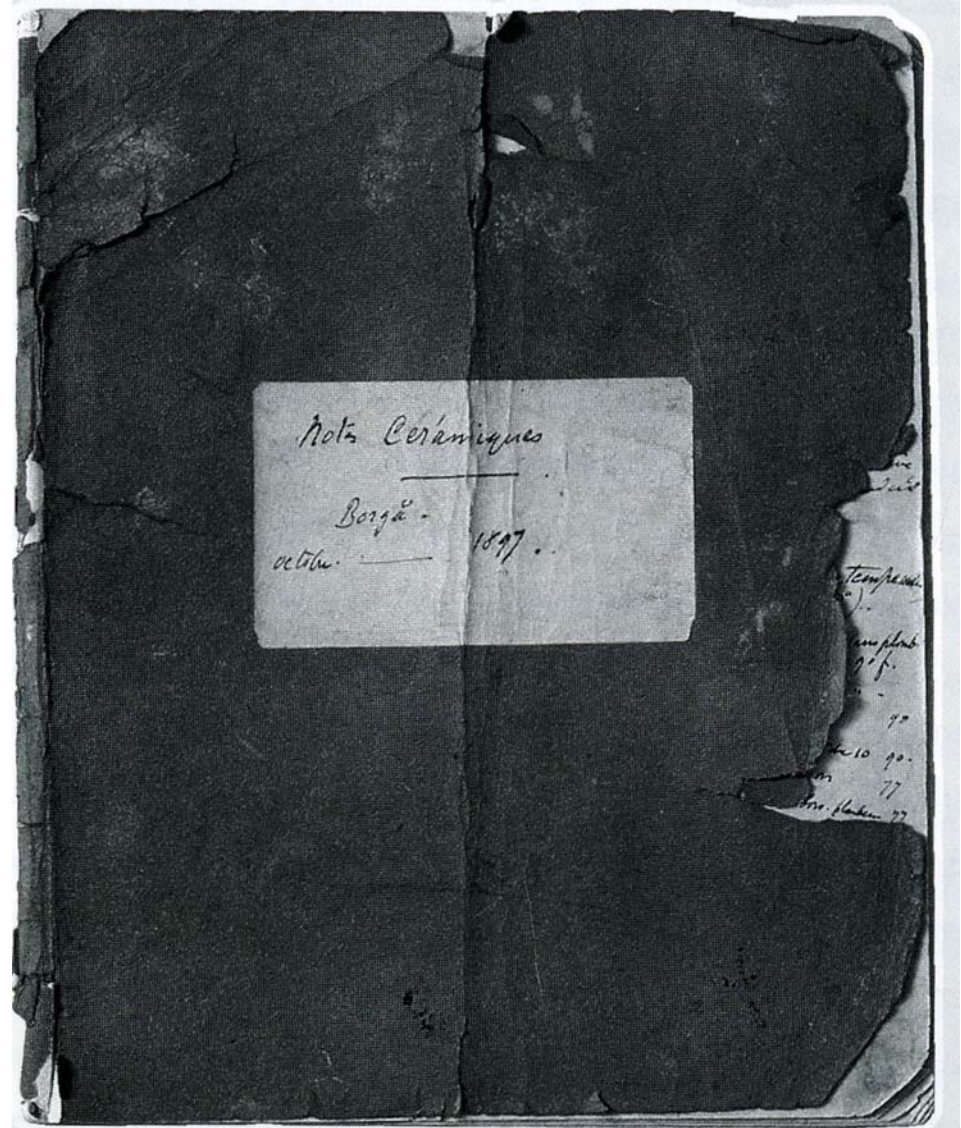 Notes Céramiques
Borgå -
octobre. — 1897.
température
plomb
g°f.
90
10 90.
77
77